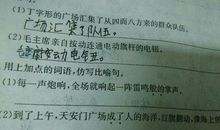 (1)丁字形的广场汇集了从四面八方来的群众队伍。
广场汇集了队伍。
(2)毛主席亲自按动连通电动旗杆的电钮。
按动电钮。
用上加点的词语,仿写比喻句。
(1)每一声炮响,全场就响起一阵雷鸣般的掌声。
(2)到了上午,天安门广场成了人的海洋,红旗翻动,像海上